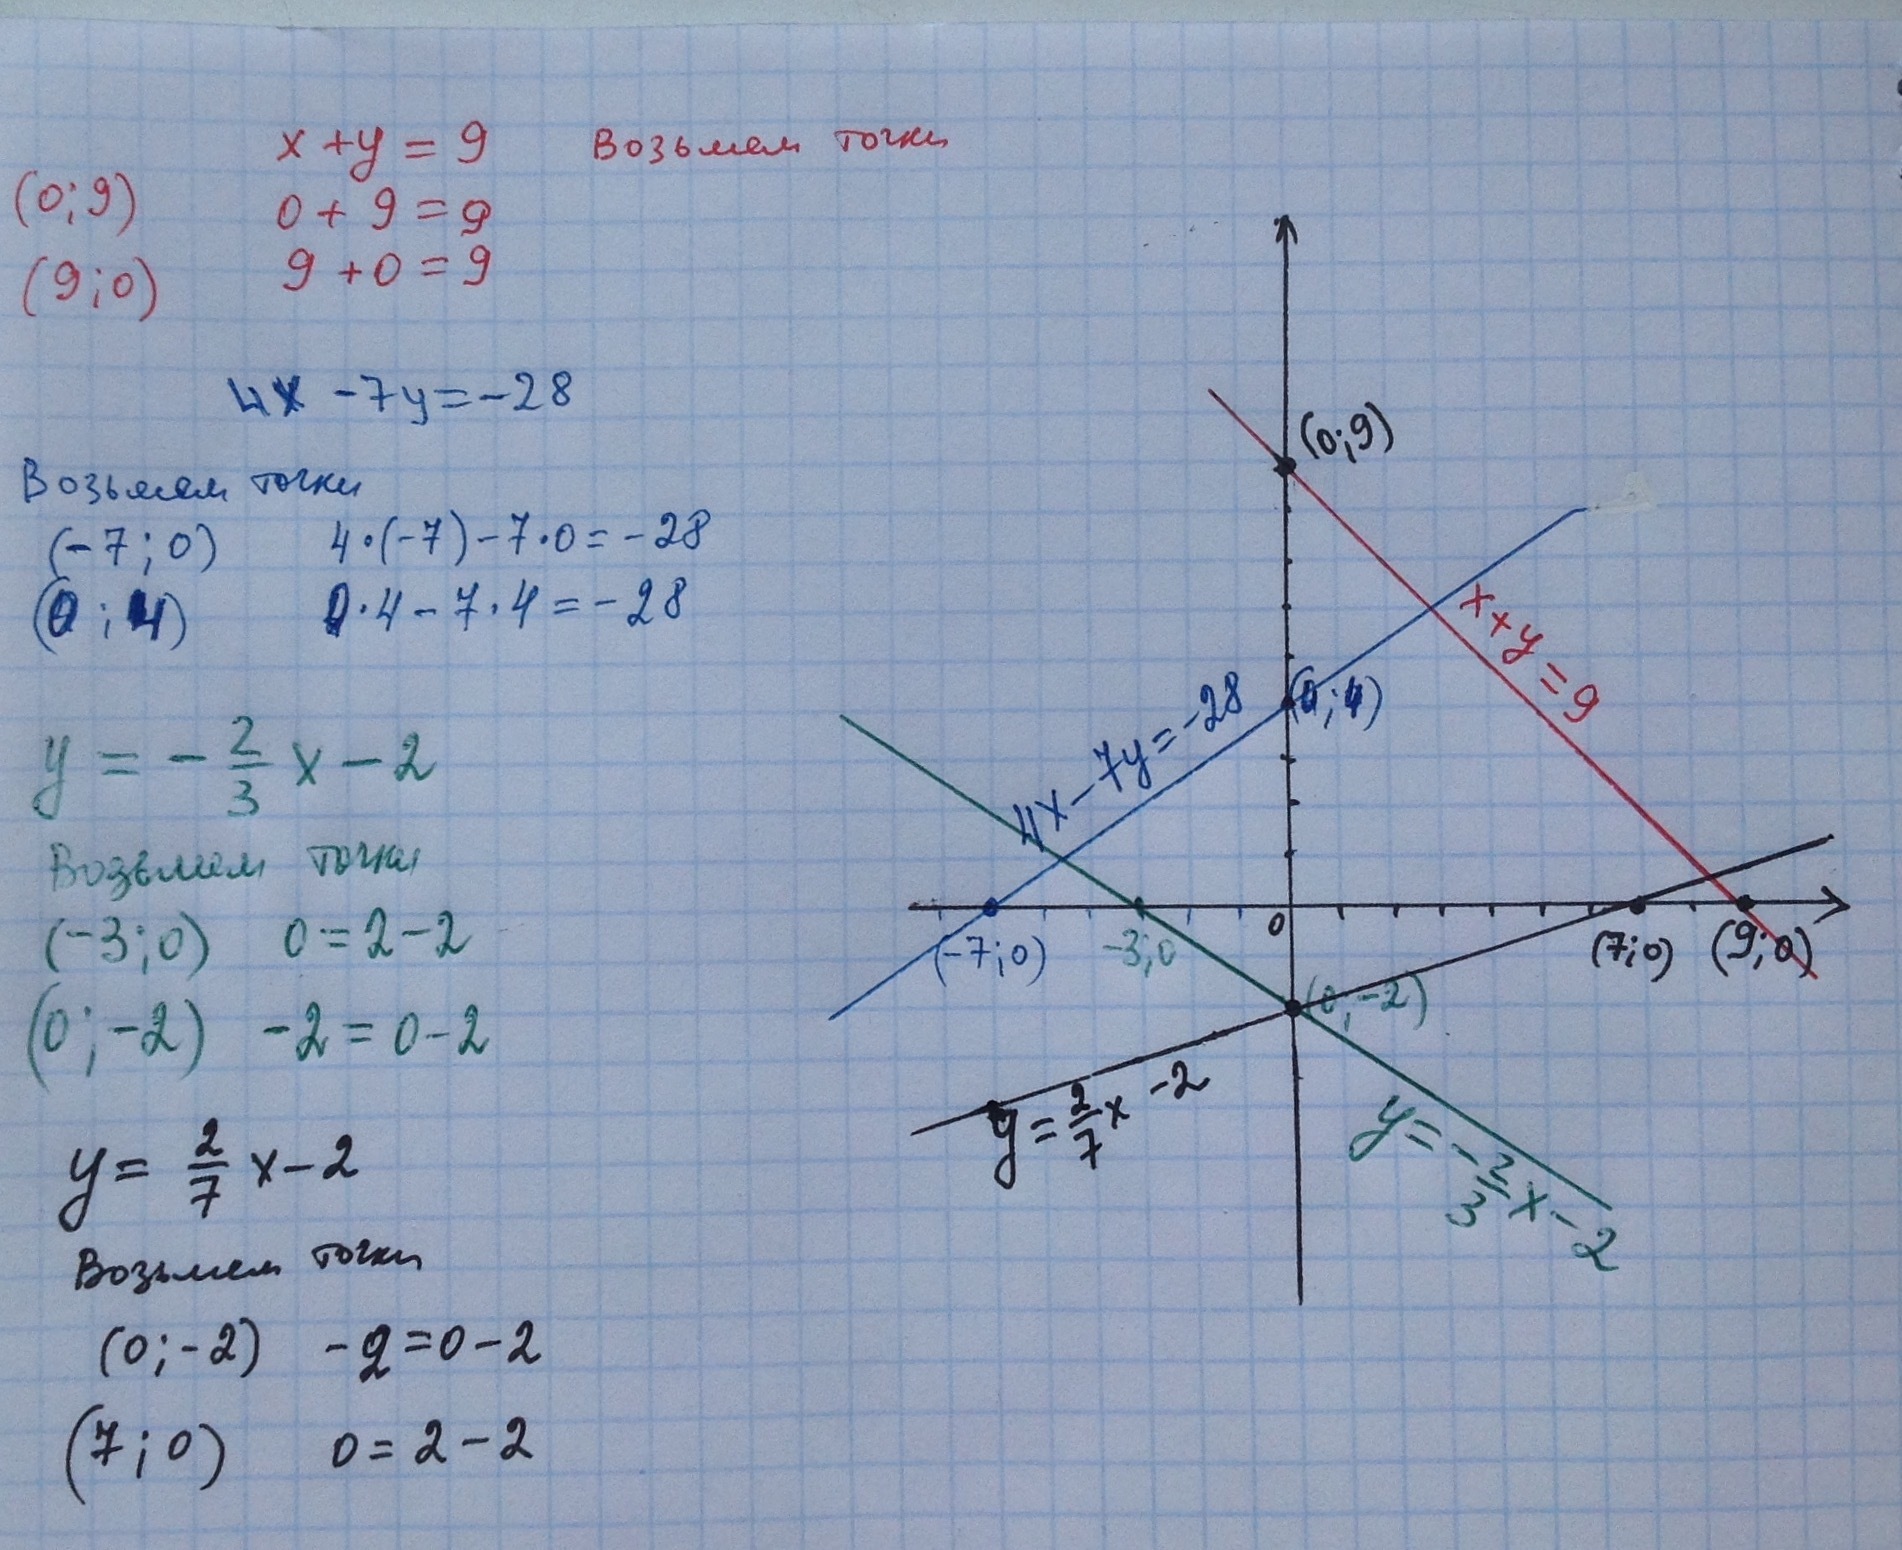 x + y = 9 Возьмем точки
(0; 9) 0 + 9 = 9
(9; 0) 9 + 0 = 9
4x - 7y = -28
Возьмем точки
(-7; 0) 4·(-7) - 7·0 = -28
(0; 4) 0·4 - 7·4 = -28
y = -2/3 x - 2
Возьмем точки
(-3; 0) 0 = 2 - 2
(0; -2) -2 = 0 - 2
y = 2/7 x - 2
Возьмем точки
(0; -2) -2 = 0 - 2
(7; 0) 0 = 2 - 2
(0; 9)
x + y = 9
(0; 4)
4x - 7y = -28
0
(-7; 0)
-3; 0
(7; 0)
(9; 0)
(0; -2)
y = 2/7 x - 2
y = -2/3 x - 2